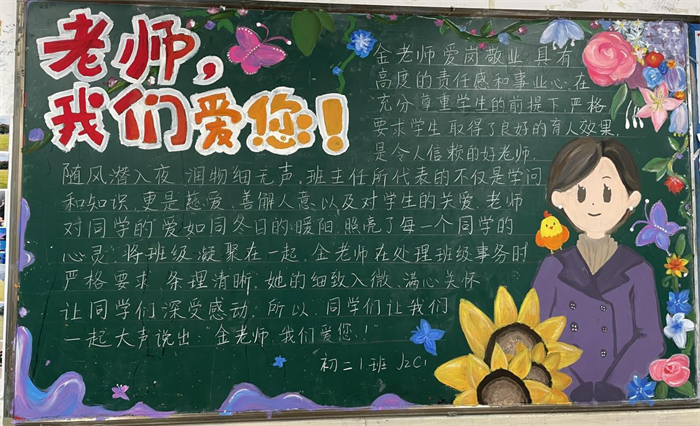 老师,
我们爱您!
金老师爱岗敬业,具有
高度的责任感和事业心,在
充分尊重学生的前提下,严格
要求学生,取得了良好的育人效果,
是令人信赖的好老师.
随风潜入夜,润物细无声,班主任所代表的不仅是学问
和知识,更是慈爱,善解人意以及对学生的关爱.老师
对同学的爱如同冬日的暖阳,照亮了每一个同学的
心灵,将班级凝聚在一起,金老师在处理班级事务时
严格要求,条理清晰,她的细致入微,满心关怀
让同学们深受感动,所以,同学们让我们
一起大声说出:"金老师,我们爱您!"
初二1班 J2C1